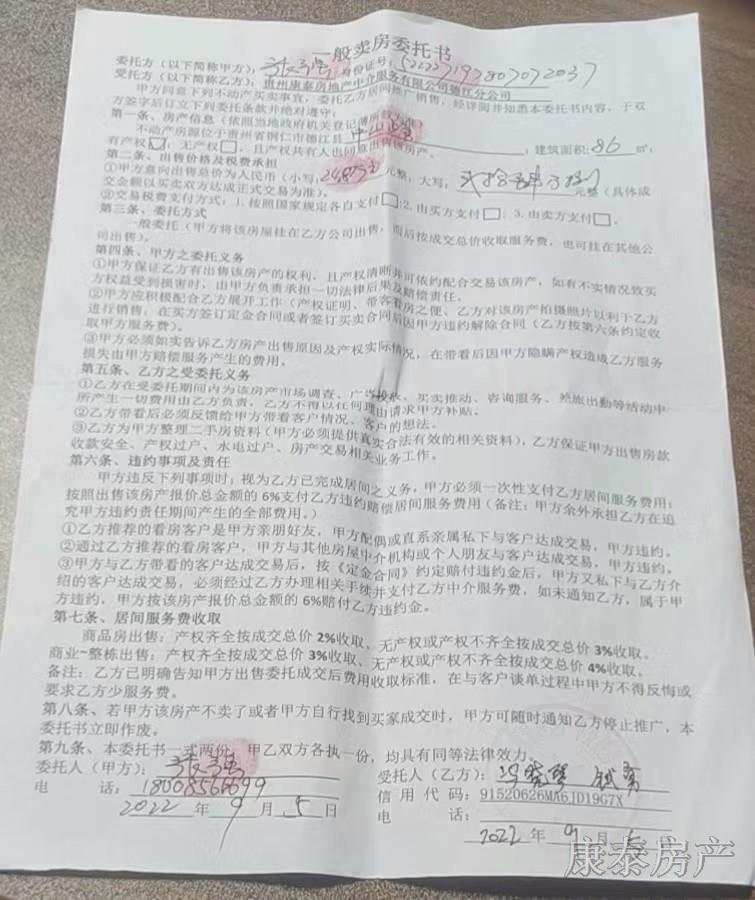 一般卖房委托书
委托方（以下简称甲方）： 身份证号：
受托方（以下简称乙方）：贵州康泰房地产中介服务有限公司德江分公司
甲方同意下列不动产买卖事宜，委托乙方居间推广销售，经详阅并知悉本委托书内容，于双
方签字后订立下列委托条款并绝对遵守：
第一条、房产信息（依照当地政府机关登记簿所载为准）
不动产房源位于贵州省铜仁市德江县 ；建筑面积:86 m²；
有产权☑；无产权□，且产权共有人也同意出售该房产。
第二条、出售价格及税费承担
①甲方意向出售总价为人民币（小写: 元整，大写： 元整（具体成
交金额以买卖双方达成正式交易为准）。
②交易税费支付方式：1.按照国家规定各自支付□;2.由买方支付□；3.由卖方支付□。
第三条、委托方式
一般委托（甲方将该房屋挂在乙方公司出售，而后按成交总价收取服务费，也可挂在其他公
司出售）。
第四条、甲方之委托义务
①甲方保证乙方有出售该房产的权利，且产权清晰并可依约配合交易该房产，如有不实情况致买
方权益受到损害时，由甲方负责承担一切法律后果及赔偿责任。
②甲方应积极配合乙方展开工作（产权证明、带客看房之便、乙方对该房产拍摄照片以利于乙方
进行销售，在买方签订定金合同或者签订买卖合同后因甲方违约解除合同（乙方按第六条约定收
取甲方服务费）。
③甲方必须如实告诉乙方房产出售原因及产权实际情况，在带看后因甲方隐瞒产权造成乙方服务
损失由甲方赔偿服务产生的费用。
第五条、乙方之受委托义务
①乙方在受委托期间内为该房产市场调查、广告 、买卖推动、咨询服务、差旅出勤等活动中
所产生一切费用由乙方负责，乙方不得以任何理由请求甲方补贴。
②乙方带看后必须反馈给甲方带看客户情况、客户的想法。
③乙方为甲方整理二手房资料（甲方必须提供真实合法有效的相关资料），乙方保证甲方出售房款
收款安全、产权过户、水电过户、房产交易相关业务工作。
第六条、违约事项及责任
甲方违反下列事项时；视为乙方已完成居间之义务，甲方必须一次性支付乙方居间服务费用；
按照出售该房产报价总金额的 6%支付乙方违约赔偿居间服务费用（备注：甲方余外承担乙方在追
究甲方违约责任期间产生的全部费用。）
①乙方推荐的看房客户是甲方亲朋好友，甲方配偶或直系亲属私下与客户达成交易，甲方违约。
②通过乙方推荐的看房客户，甲方与其他房屋中介机构或个人朋友与客户达成交易，甲方违约。
③甲方与乙方带看的客户达成交易后，按《定金合同》约定赔付违约金后，甲方又私下与乙方介
绍的客户达成交易，必须经过乙方办理相关手续并支付乙方中介服务费，如未通知乙方，属于甲
方违约，甲方按该房产报价总金额的 6%赔付乙方违约金。
第七条、居间服务费收取
商品房出售：产权齐全按成交总价 2%收取、无产权或产权不齐全按成交总价 3%收取。
商业~整栋出售：产权齐全按成交总价 3%收取、无产权或产权不齐全按成交总价 4%收取。
备注：乙方已明确告知甲方出售委托成交后费用收取标准，在与客户谈单过程中甲方不得反悔或
要求乙方少服务费。
第八条、若甲方该房产不卖了或者甲方自行找到买家成交时，甲方可随时通知乙方停止推广，本
委托书立即作废。
第九条、本委托书一式两份，甲乙双方各执一份，均具有同等法律效力。
委托人（甲方）： 受托人（乙方）：
电 话：18008566699 信 用 代 码：91520626MA6JD19G7X
电 话：
2022 年 9 月 5 日 2022 年 9 月 5
康泰房产